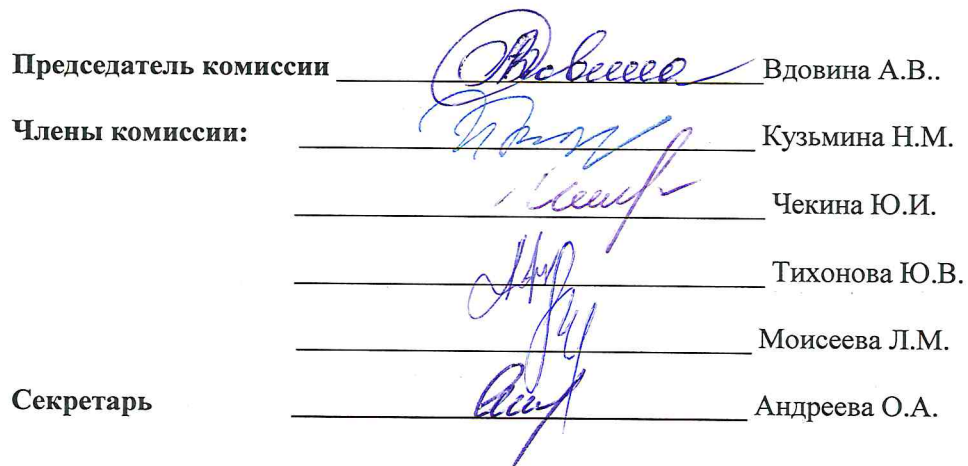 Председатель комиссии Вдовина А.В..
Члены комиссии: Кузьмина Н.М.
Чекина Ю.И.
Тихонова Ю.В.
Моисеева Л.М.
Секретарь Андреева О.А.